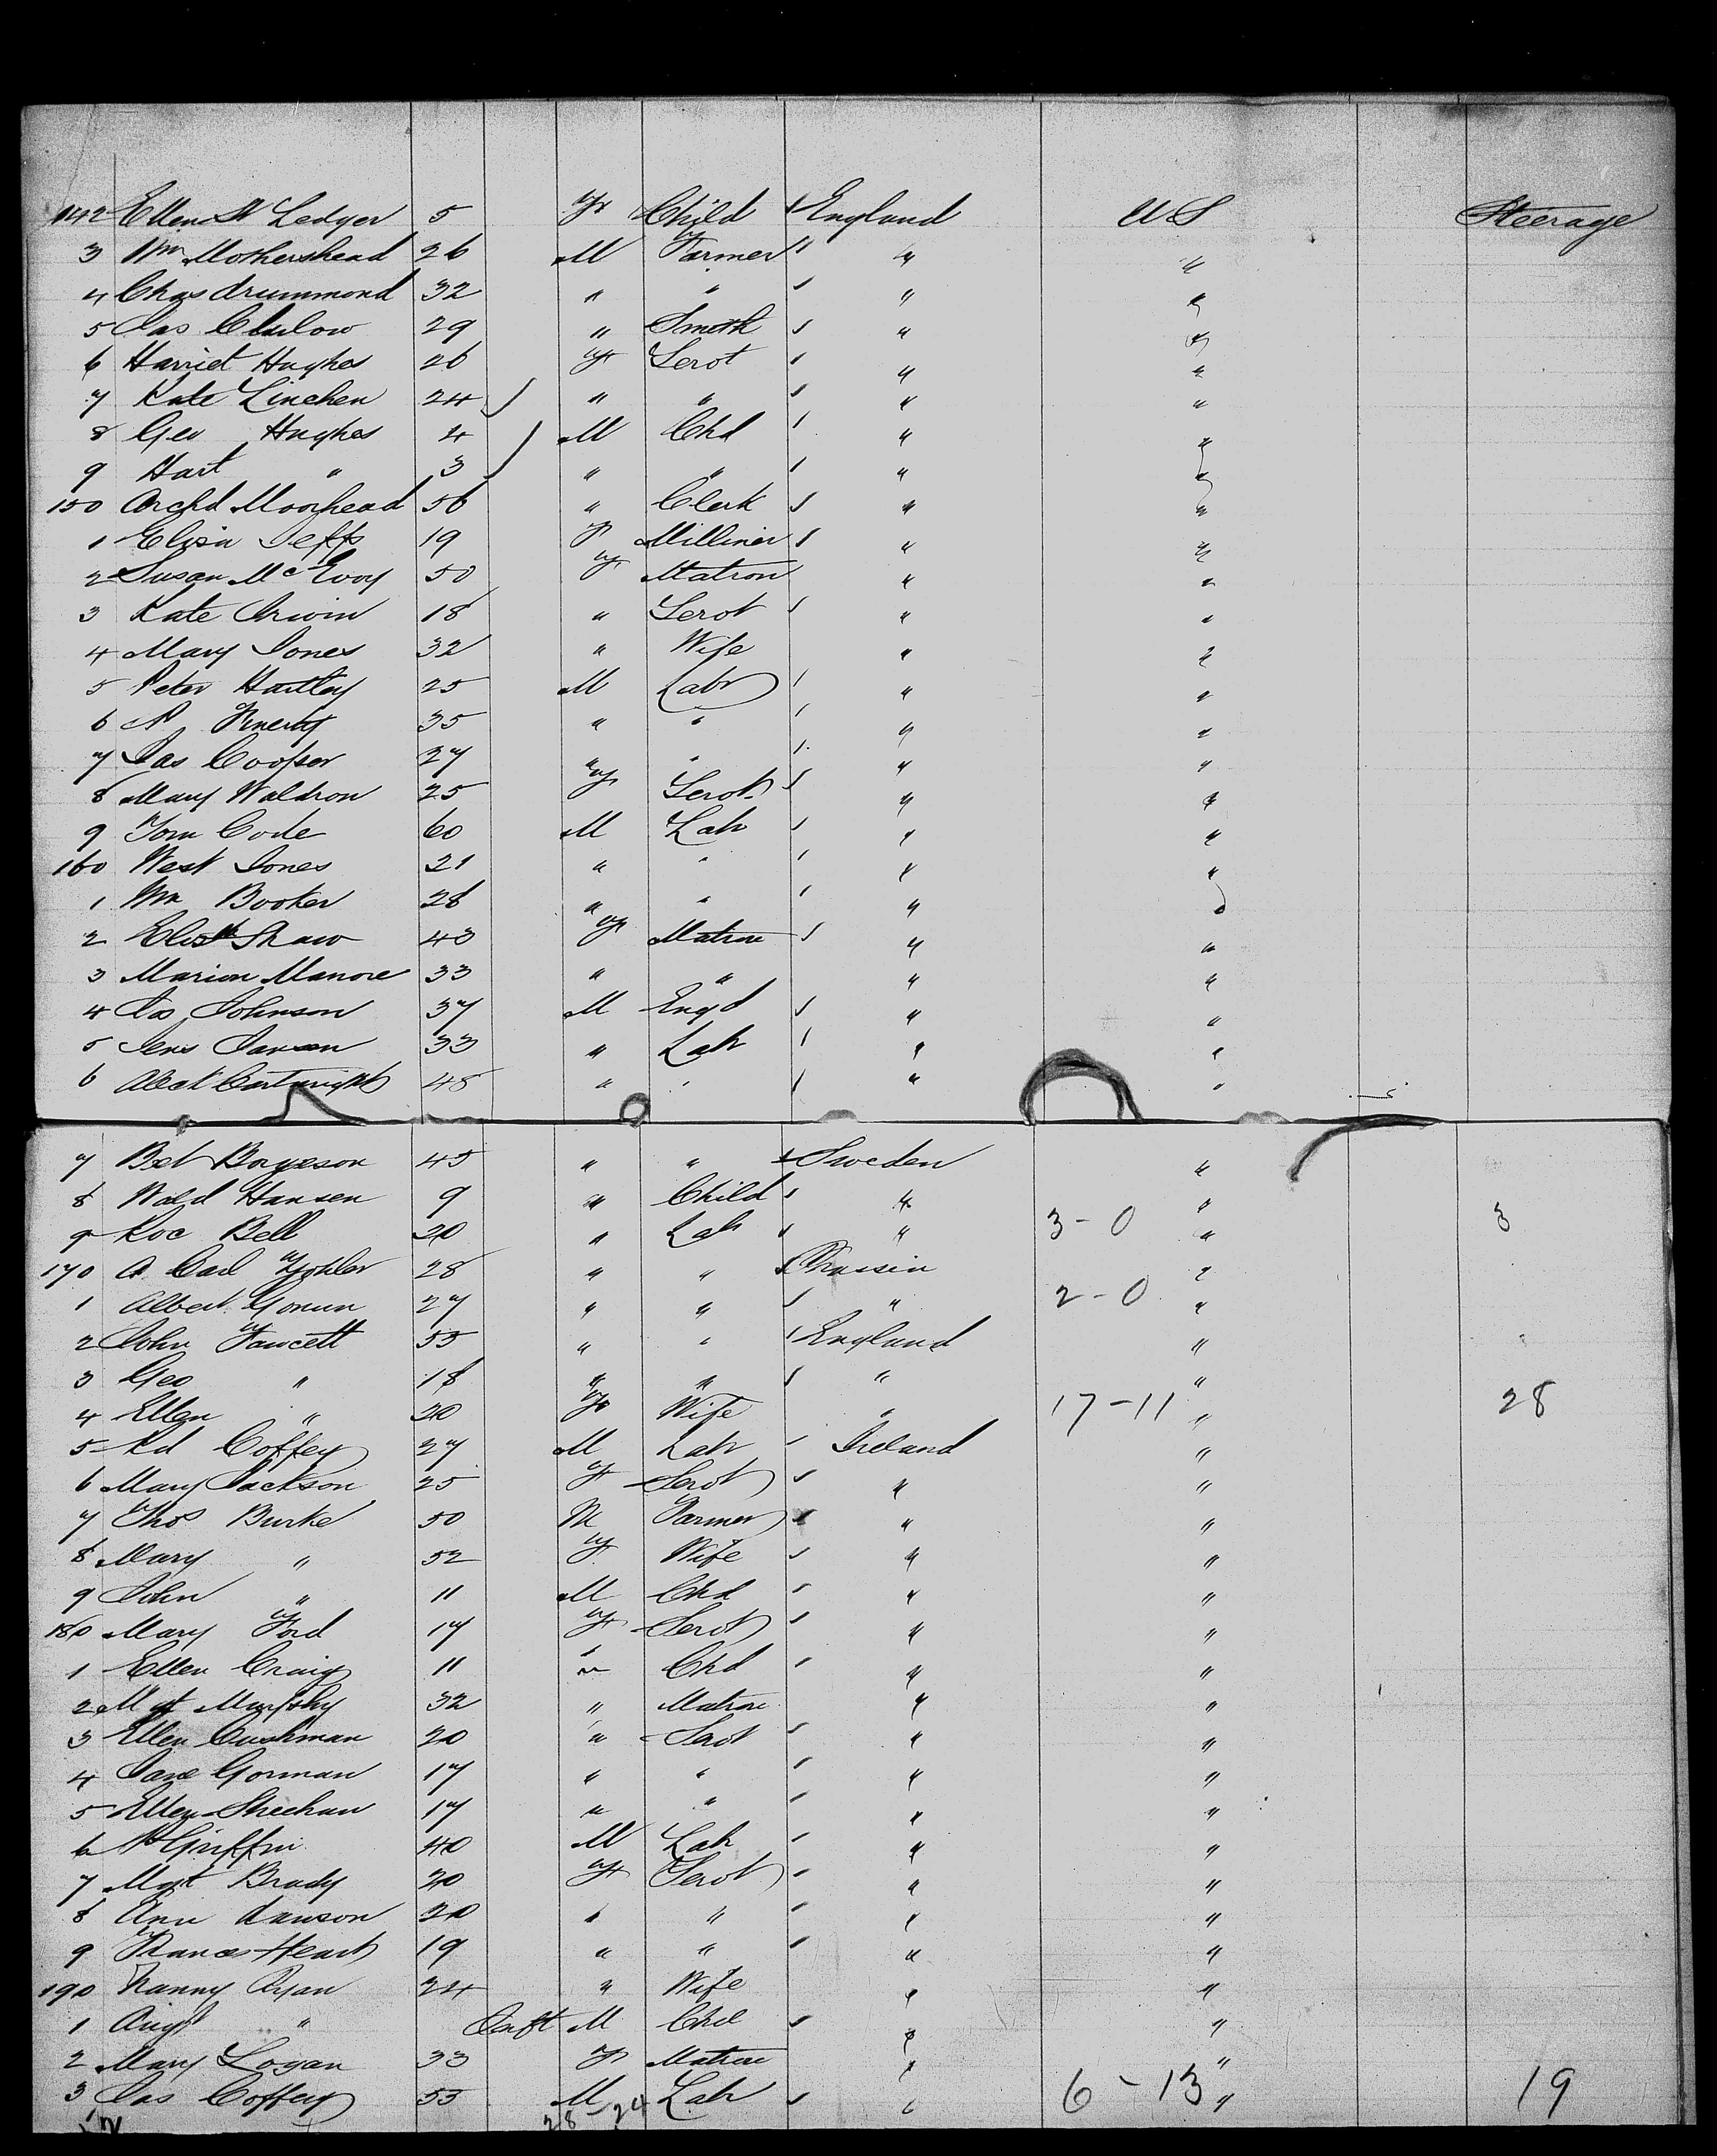 142 Ellen St Ledger 5 F Child England U S Steerage
3 Wm Mothershead 26 M Farmer " "
4 Chas Drummond 32 " " " "
5 Jas 29 " Smith " "
6 Harriet Hughes 26 F Servt " "
7 Kate Linehen 24 " " " "
8 Geo Hughes 4 M Chd " "
9 Hart " 3 " " " "
150 Archd Moorhead 56 " Clerk " "
1 Eliza Jeffs 19 F Milliner " "
2 Susan McEvoy 50 F Matron " "
3 Kate Irwin 18 " Servt " "
4 Mary Jones 32 " Wife " "
5 Peter Hartley 25 M Labr " "
6 35 " " " "
7 Jas Cooper 27 " " " "
8 Mary Waldron 25 F Servt " "
9 Tom Code 60 M Lab " "
160 West Jones 21 " " " "
1 Wm Booker 28 " " " "
2 Elisth Shaw 43 F Matron " "
3 Marion Manore 33 " " " "
4 Jas Johnson 37 M Engd " "
5 Jens 33 " Lab " "
6 Alex Cartwright 48 " " " "
7 Bet Borgeson 45 " " Sweden "
8 Wald Hansen 9 " Child " "
9 Roc Bell 20 " Lab " 3-0 " 3
170 A Carl 28 " " Prussia "
1 Albert 27 " " " 2-0 "
2 John Fawcett 55 " " England "
3 Geo " 18 " " " "
4 Ellen " 20 F Wife " 17-11 " 28
5 Rd Coffey 27 M Lab Ireland "
6 Mary Jackson 25 F Servt " "
7 Thos Burke 50 M Farmer " "
8 Mary " 52 F Wife " "
9 John " 11 M Chd " "
180 Mary Ford 17 F Servt " "
1 Ellen Craig 11 " Chd " "
2 Mgt Murphy 32 " Matron " "
3 Ellen Cushman 20 " Servt " "
4 Jane Gorman 17 " " " "
5 Ellen Sheehan 17 " " " "
6 Griffin 40 M Lab " "
7 Mgt Brady 20 F Servt " "
8 Ann Rawson 20 " " " "
9 Frances Heart 19 " " " "
190 Nanny Ryan 24 " Wife " "
1 " Inft M Chd " "
2 Mary Logan 33 F Matron " "
3 Jas Coffey 55 M Lab " 6-13 " 19
28-24